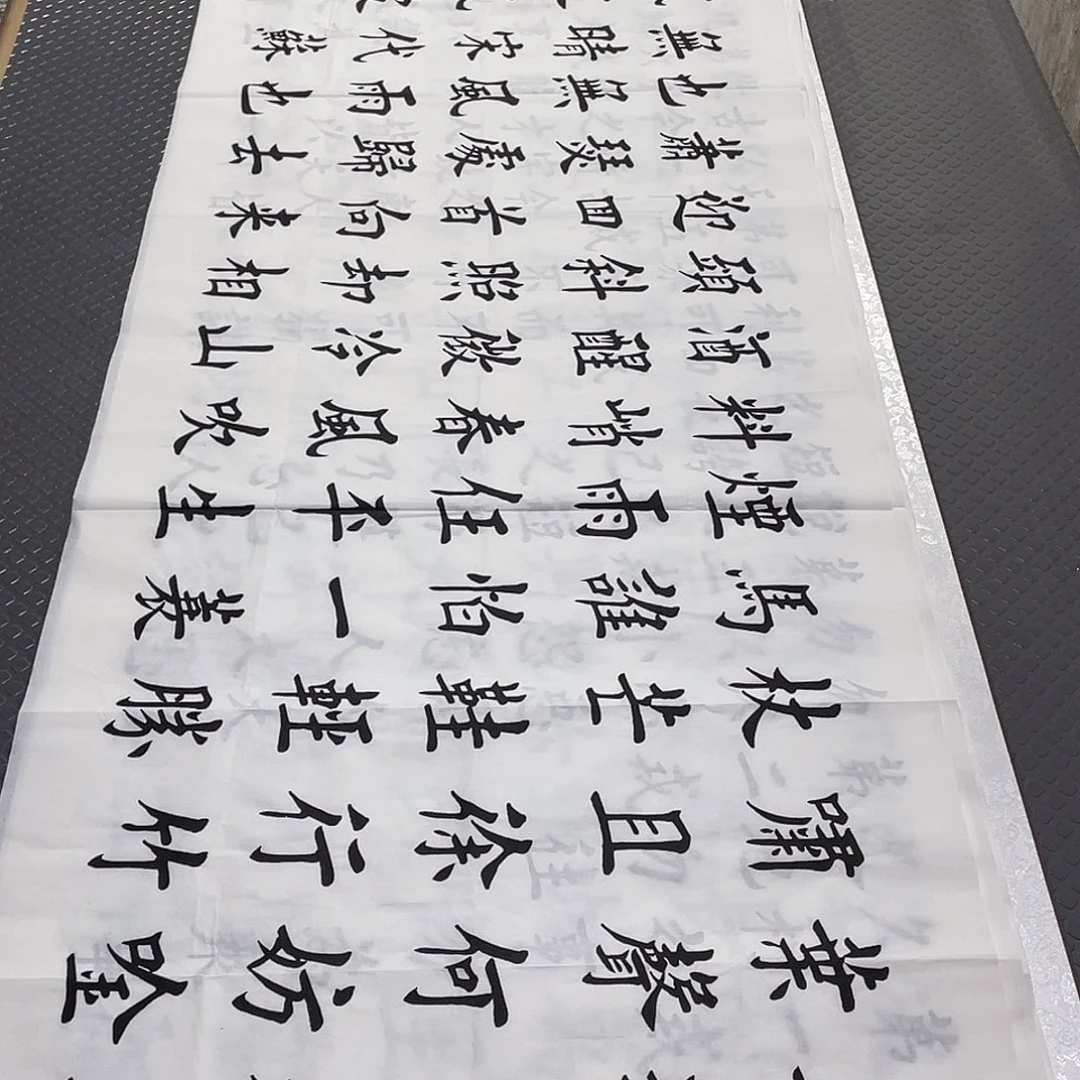 葉聲何妨吟
嘯且徐行竹
杖芒鞋輕勝
馬誰怕一蓑
煙雨任平生
料峭春風吹
酒醒微冷山
頭斜照却相
迎回首向来
蕭瑟處歸去
也無風雨也
無晴宋代蘇